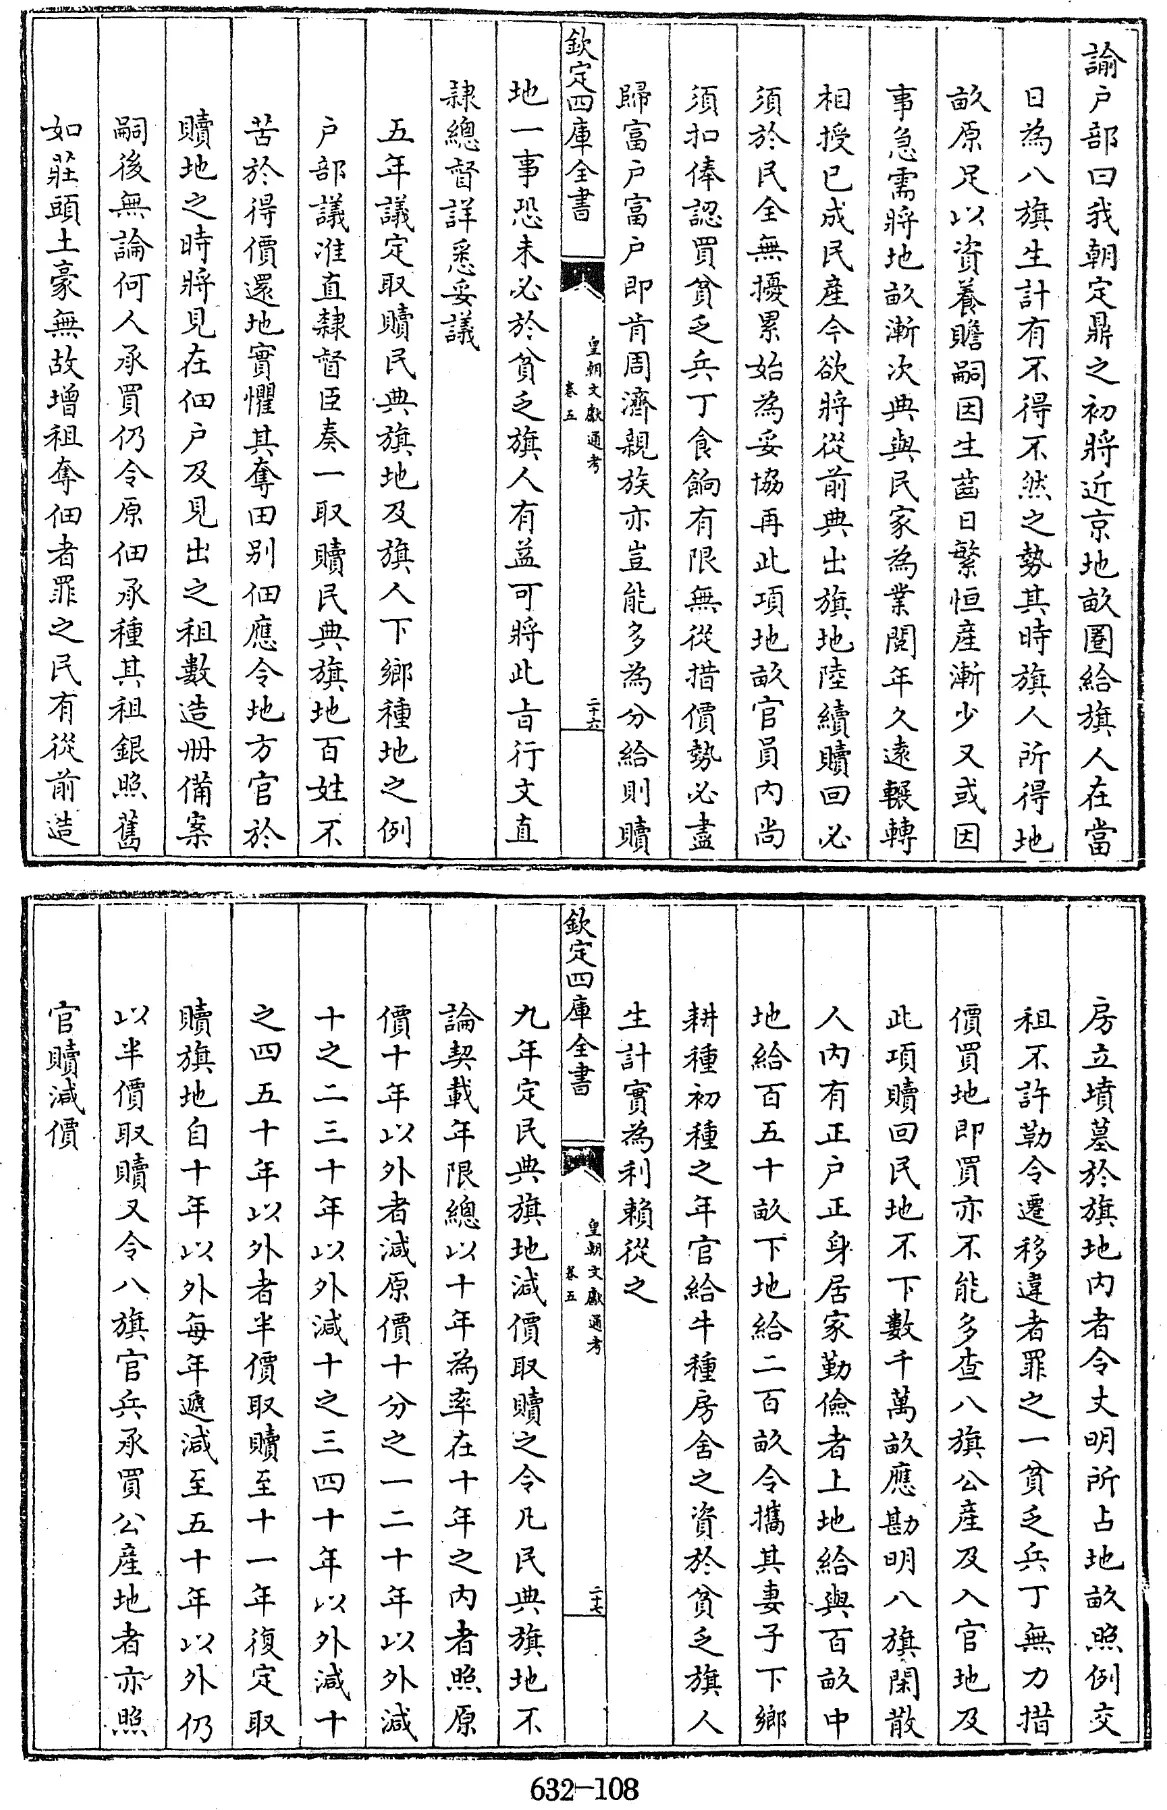 諭户部曰我朝定鼎之初將近京地畝圈給旗人在當
日為八旗生計有不得不然之勢其時旗人所得地
畝原足以資養贍嗣因生齒日繁恒産漸少又或因
事急需將地畝漸次典與民家為業閲年久遠輾轉
相授已成民産今欲將從前典出旗地陸續贖回必
須於民全無擾累始為妥協再此項地畝官員内尚
須扣俸認買貧乏兵丁食餉有限無從措價勢必盡
歸富户富户即肯周濟親族亦豈能多為分給則贖
欽定四庫全書
皇朝文獻通考
卷五
二十六
地一事恐未必於貧乏旗人有益可將此㫖行文直
隷總督詳悉妥議
五年議定取贖民典旗地及旗人下鄉種地之例
户部議准直隷督臣奏一取贖民典旗地百姓不
苦於得價還地實懼其奪田别佃應令地方官於
贖地之時將見在佃户及見出之租數造册備案
嗣後無論何人承買仍令原佃承種其租銀照舊
如莊頭土豪無故增租奪佃者罪之民有從前造
房立墳墓於旗地内者令丈明所占地畝照例交
租不許勒令遷移違者罪之一貧乏兵丁無力措
價買地即買亦不能多查八旗公産及入官地及
此項贖回民地不下數千萬畝應勘明八旗閑散
人内有正户正身居家勤儉者上地給與百畝中
地給百五十畝下地給二百畝令攜其妻子下鄉
耕種初種之年官給牛種房舍之資於貧乏旗人
生計實為利賴從之
欽定四庫全書
皇朝文獻通考
卷五
二十七
九年定民典旗地減價取贖之令凡民典旗地不
論契載年限總以十年為率在十年之内者照原
價十年以外者減原價十分之一二十年以外減
十之二三十年以外減十之三四十年以外減十
之四五十年以外者半價取贖至十一年復定取
贖旗地自十年以外每年遞減至五十年以外仍
以半價取贖又令八旗官兵承買公産地者亦照
官贖減價
632-108